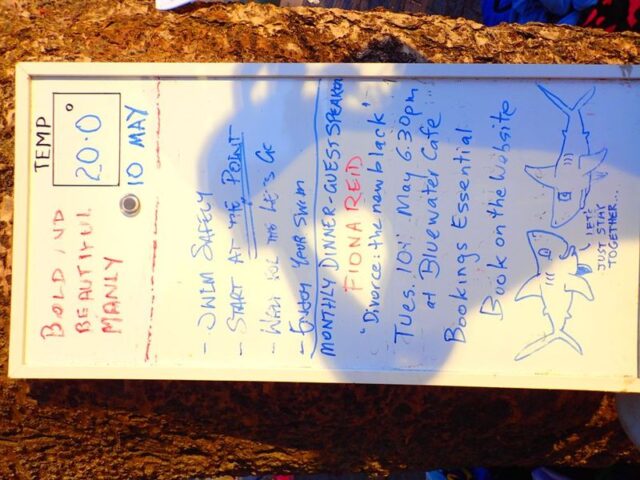 TEMP
20.0°
10 MAY
BOLD AND
BEAUTIFUL
MANLY
- SWIM SAFELY
- START AT THE POINT
- WAIT FOR THE LE'S GE
- ENJOY YOUR SWIM
MONTHLY DINNER-GUEST SPEAKER
FIONA REID
"Divorce: the new black"
Tues. 10th May 6.30pm
at Bluewater Cafe
Bookings Essential
Book on the Website
LET'S
JUST STAY
TOGETHER...